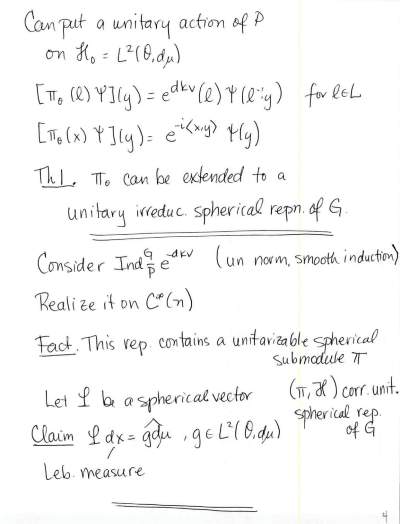 Can put a unitary action of P
on ℋ₀ = L²(θ, dμ)
[π_θ (l) Ψ](y) = e^{dkν}(l) Ψ(l⁻¹·y) for l∈L
[π_θ (x) Ψ](y) = e^{-i<x,y>} Ψ(y)
Th1. π₀ can be extended to a
unitary irreduc. spherical repn. of G.
Consider Ind_P^G e^{-dkν} (un norm, smooth induction)
Realize it on C^∞(n)
Fact. This rep. contains a unitarizable spherical
submodule π
Let φ be a spherical vector (π, ℋ) corr. unit.
spherical rep.
of G
Claim φ dx = \widehat{g dμ}, g ∈ L²(θ, dμ)
Leb. measure
4